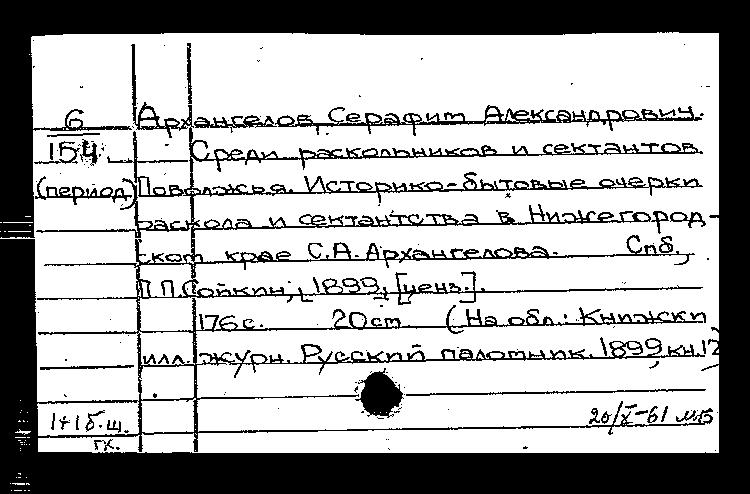 6 Архангелов, Серафим Александрович.
154. Среди раскольников и сектантов
(период) Поволжья. Историко-бытовые очерки
раскола и сектантства в Нижегород-
ском крае С.А. Архангелова. Спб.,
П.П.Сойкин, 1899, [ценз.].
176 с. 20 см (На обл.: Книжки
илл. журн. Русский паломник. 1899, кн. 12)
1+1б.щ. 20/X-61
гк.